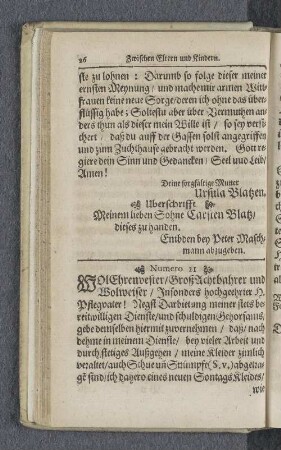 26 Zwischen Eltern und Kindern.
ste zu lohnen : Darumb so folge dieser meiner
ernsten Meynung / und mache mir armen Witt-
frauen keine neue Sorge / deren ich ohne das über-
flüssig habe; Soltestu aber über Vermuthen an-
ders thun als dieser mein Wille ist / so sey versi-
chert / daß du auff der Gassen solst angegriffen
und zum Zuchthause gebracht werden. Gott re-
giere dein Sinn und Gedancken / Seel und Leib /
Amen!
Deine sorgfältige Mutter
Ursula Blatzen.
Uberschrifft.
Meinem lieben Sohne Carsten Blatz /
dieses zu handen.
Embden bey Peter Masch-
mann abzugeben.
Numero 11
WOlEhrenvester / GroßAchtbahrer und
Wolweiser / Insonders hochgeehrter H.
Pflegvater! Negst Darbietung meiner stets be-
reitwilligen Dienste / und schuldigen Gehorsams,
gebe demselben hiermit zuvernehmen / daß / nach
dehme in meinem Dienste / bey vieler Arbeit und
durch stetiges Außgehen / meine Kleider zimlich
veraltet / auch Schue uñ Strümpfe (S. v.) abgetra-
gt sind / ich dahero eines neuen Sontags Kleides /
wie